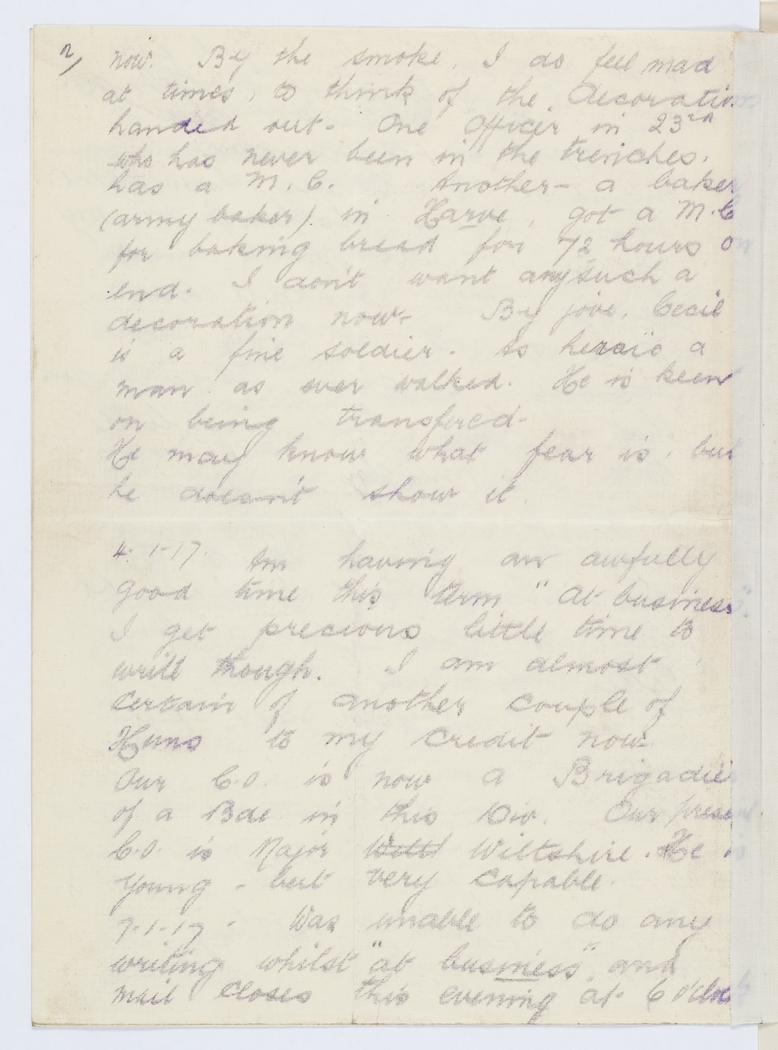 2/
now. By the smoke, I do feel mad
at times, to think of the Decorations
handed out. One Officer in 23rd
who has never been in the trenches.
has a M.C. Another - a baker
(army baker) in Harve, got a M.C
for baking bread for 72 hours on
end. I don't want any such a
decoration now. By jove, Cecil
is a fine soldier. As heroic a
man as ever walked. He is keen
on being transfered.
He may know what fear is, but
he doesn't show it.
4.1.17. Am having an awfully
good time this term "at business".
I get precious little time to
write though. I am almost
certain of another couple of
Huns to my credit now.
Our C.O. is now a Brigadier
of a Bde in this Div. Our present
C.O. is Major Wiltshire. He is
young - but very capable.
7.1.17. Was unable to do any
writing whilst "at business" and
mail closes this evening at 6 o'clock